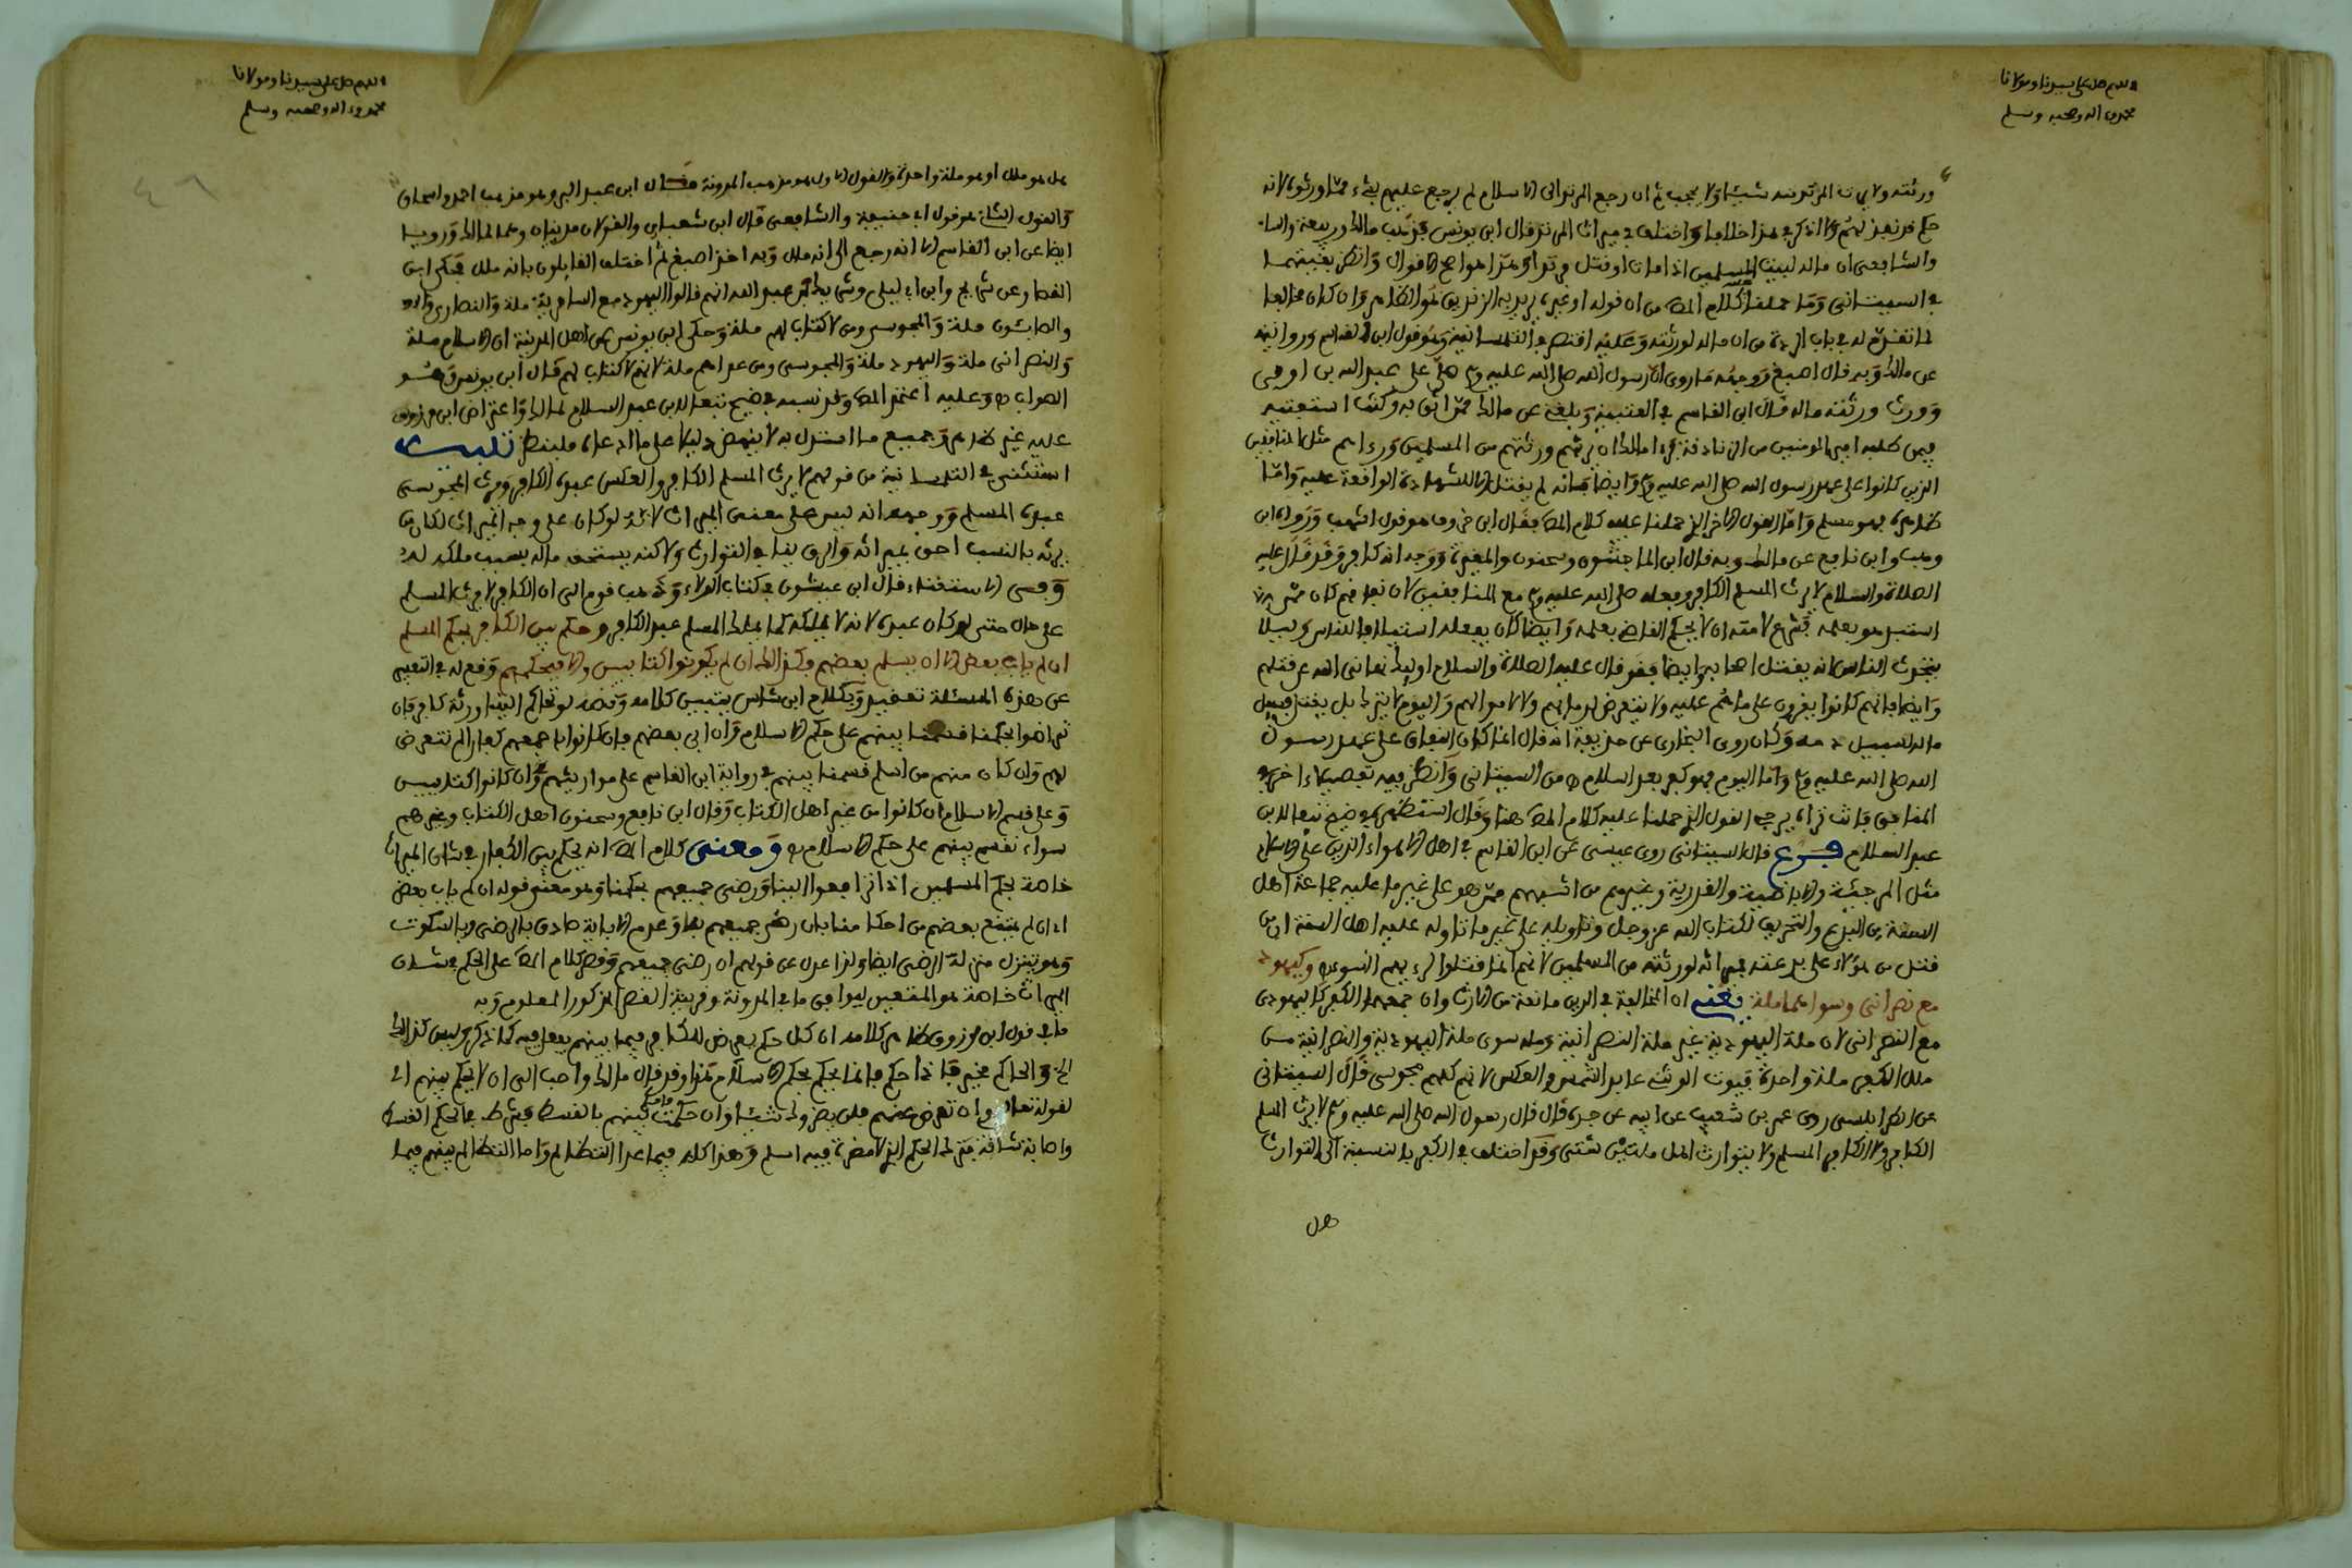 اللهم صل على سيدنا ومولانا
محمد وءاله وصحبه وسلم
ورثته ولا يرث المرتد منه شيئا ولا يحجب ثم ان رجع المرتد الى الاسلام لم يرجع عليهم بشيء مما ورثوه لانه
حكم قد نفذ ولا اذكر في هذا خلافا واختلف في ميراث المرتد قال ابن يونس مذهب مالك وربيعة
والشافعي ان ماله لبيت المسلمين اذا مات او قتل مرتدا وهذا هو اصح الاقوال وانظر بقيتها
في السبتاني وما حملنا عليه كلام المص من ان قوله او غيره يريد به الزنديق هو الظاهر وان كان مخالفا
لما تقدم له في باب الردة من ان ماله لورثته وعليه اقتصر في التلمسانية وهو قول ابن القاسم وروايته
عن مالك وبه قال اصبغ ووجهه ما روي ان رسول الله صلى الله عليه وسلم صلى على عبد الله بن ابي
وورث ورثته ماله قال ابن القاسم في العتبية وبلغني عن مالك ممن اثق به وكتب استفتيه
فيمن طلبه امير المومنين من الزنادقة فرءا مالك ان يرثهم ورثتهم من المسلمين ورءاهم مثل المنافقين
الذين كانوا على عهد رسول الله صلى الله عليه وسلم وايضا فانه لم يقتل الا للشهادة الواقعة عليه واما
ظاهره فهو مسلم واما القول الاخر الذي حملنا عليه كلام المص فقال ابن خروف هو قول اشهب ورواه ابن
وهب وابن نافع عن مالك وبه قال ابن الماجشون وسحنون والمغيرة ووجهه انه كافر وقد قال عليه
الصلاة والسلام لا يرث المسلم الكافر وفعله صلى الله عليه وسلم مع المنافقين لان نفاقهم كان
استبد هو بعلمه فشرع لامته ان لا يحكم القاضي بعلمه وايضا كان يفعله استيلافا للناس وليلا
يتحدث الناس انه يقتل اصحابه وايضا فقد قال عليه الصلاة والسلام اوليك نهاني الله عن قتلهم
وايضا فانهم كانوا يقرون على ما هم عليه ولا يتعرض لدمايهم ولا لاموالهم واليوم لا يترك بل يقتل فسبيل
ماله سبيل دمه وكان روى البخاري عن حذيفة انه قال انما كان النفاق على عهد رسول
الله صلى الله عليه وسلم واما اليوم فهو كفر بعد اسلام ه من السبتاني وانظر فيه تفصيلا ءاخر في
المنافق فانت تراه يرجح القول الذي حملنا عليه كلام المص هنا وقال استظهره في ضيح تبعا لابن
عبد السلام فرع قال السبتاني روى عيسى عن ابن القاسم في اهل الاهواء الذين على الاسلام
مثل المرجئة والاباضية والقدرية وغيرهم من اشبههم ممن هو على غير ما عليه جماعة اهل
السنة من البدع والتحريف لكتاب الله عز وجل وتاويله على غير ما تاوله عليه اهل السنة ان من
قتل من هؤلاء على بدعته فميراثه لورثته من المسلمين لانهم انما قتلوا لرءيهم السوء وكيهودي
مع نصراني وسواهما ملة يعني ان المخالفة في الدين مانعة من الارث وان جمعهما الكفر كاليهودي
مع النصراني لان ملة اليهودية غير ملة النصرانية وما سوى ملة اليهودية والنصرانية من
ملل الكفر ملة واحدة فيرث الوثني عابد الشمس والعكس لانهم كلهم مجوسي قال السبتاني
عن الطرابلسي روى عمر بن شعيب عن ابيه عن جده قال قال رسول الله صلى الله عليه وسلم لا يرث المسلم
الكافر ولا الكافر المسلم ولا يتوارث اهل ملتين شتى وقد اختلف في الكفر بالنسبة الى التوارث
هل
اللهم صل على سيدنا ومولانا
محمد وءاله وصحبه وسلم
هل هو ملل او هو ملة واحدة والقول الاول هو مذهب المدونة قال ابن عبد البر وهو مذهب احمد واسحاق
والقول الثاني هو قول ابي حنيفة والشافعي قال ابن شعبان والقولان مدنيان وهما لمالك وروي
ايضا عن ابن القاسم الا انه رجع الى انه ملل وبه اخذ اصبغ ثم اختلف القايلون بانه ملل فحكى ابن
القصار عن شريح وابن ابي ليلى وشريك بن عبد الله انهم قالوا اليهود مع السامرية ملة والنصارى
والصابئون ملة والمجوس ومن لا كتاب لهم ملة وحكى ابن يونس عن اهل المدينة ان الاسلام ملة
والنصراني ملة واليهود ملة والمجوسي ومن عداهم ملة لانهم لا كتاب لهم قال ابن يونس وهو
الصواب ه وعليه اعتمد المص وقد نسبه في ضيح تبعا لابن عبد السلام لمالك واعتراض ابن مرزوق
عليه غير ظاهر وجميع ما استدل به لا ينهض دليلا على ما ادعاه فلينظر تنبيه
استثني في التلمسانية من قولهم لا يرث المسلم الكافر والعكس عبده الكافر ويرث المجوسي
عبده المسلم ووجهه انه ليس على معنى الميراث لانه لو كان على وجه الميراث لكان من
يرثه بالنسب احق بميراثه والرق ينافي التوارث ولاكنه يستحق ماله بسبب ملكه له
وحسن الاستثناء قال ابن عبشون في كتاب الولاء وذهب قوم الى ان الكافر لا يرث المسلم
على حال حتى لو كان عبده لانه لا يملكه كما يملك المسلم عبده الكافر وحكم بين الكافر بحكم المسلم
ان لم ياب بعض الا ان يسلم بعضهم فكذلك ان لم يكونوا كتابيين والا فبحكمهم وقع له في التعبير
عن هذه المسئلة تعقيد وبكلام ابن شاس يتبين كلامه ونصه لو تحاكم الينا ورثة كافر فان
تراضوا بحكمنا قسمنا بينهم على حكم الاسلام وان ابى بعضهم فان كانوا جميعهم كفارا لم نتعرض
لهم وان كان منهم من اسلم قسمنا بينهم في رواية ابن القاسم على مواريثهم ان كانوا كتابيين
وعلى قسم الاسلام ان كانوا من غير اهل الكتاب وقال ابن نافع وسحنون اهل الكتاب وغيرهم
سواء نقسم بينهم على حكم الاسلام ه ومعنى كلام المص انه يحكم بين الكفار في شان الميراث
خاصة بحكم المسلمين اذا ترافعوا الينا ورضي جميعهم بحكمنا وهو معنى قوله ان لم ياب بعض
اي ان لم يمتنع بعضهم من احكامنا بان رضي جميعهم بها وعدم الاباية صادق بالرضى وبالسكوت
وهو يتنزل منزلة الرضى ايضا ولذا عدل عن قولهم ان رضي جميعهم وقصر كلام المص على الحكم في شان
الميراث خاصة هو المتعين ليوافق ما في المدونة وقرينة الفصل المذكور المعلوم وبه
ما في قول ابن مرزوق ظاهر كلامه ان كل حكم يعرض للكافر فيما بينهم يفعل فيه كما ذكر وليس كذلك
الخ والحاكم مخير فاذا حكم فانما يحكم بحكم الاسلام هذا وقد قال مالك واحب الي ان لا يحكم بينهم اي
لقوله تعالى وان تعرض عنهم فلن يضروك شيئا وان حكمت فاحكم بينهم بالقسط فشرط في الحكم القسط
واصابته شاقة فترك الحكم الذي لا مضرة فيه اسلم وهذا كله فيما عدا التظالم واما التظالم بينهم فيما